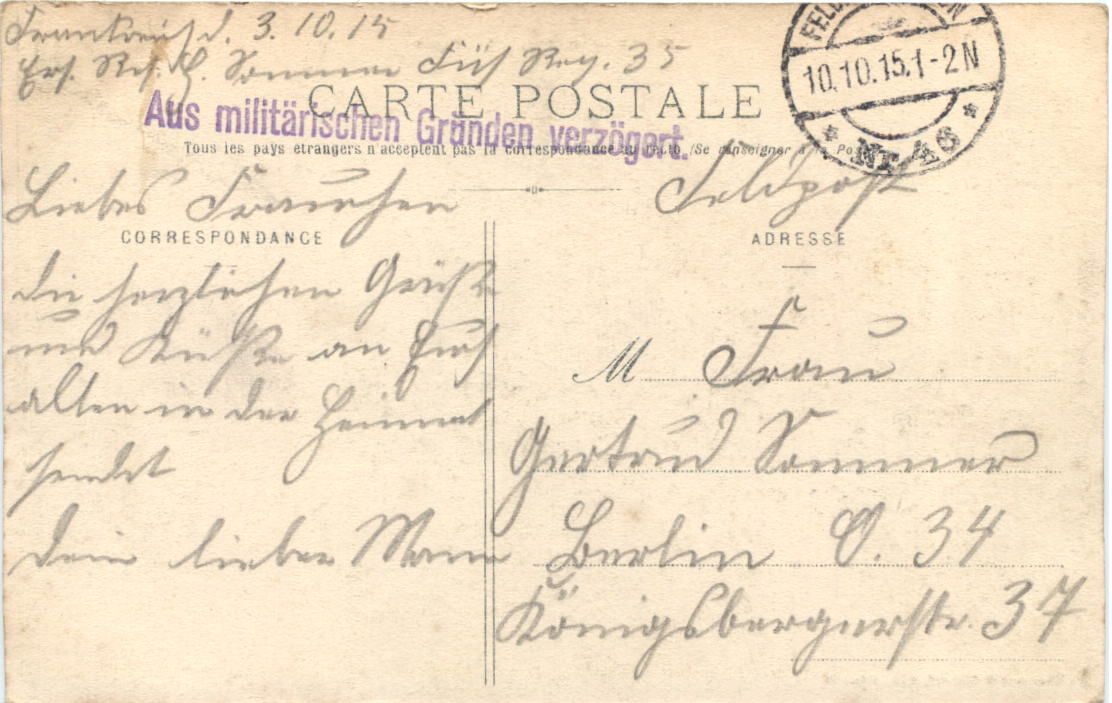 Frankreich d. 3.10.15
Ers. Res. G. Sommer Füs Reg. 35
CARTE POSTALE
Aus militärischen Gründen verzögert.
Tous les pays étrangers n'acceptent pas la correspondance au recto (Se renseigner à la Poste)
Liebes Frauchen
CORRESPONDANCE
die herzlichen Grüße
und Küße an Euch
allen in der Heimat
sendet
dein lieber Mann
FELD
10.10.15.1-2N
* Nr. 46 *
Feldpost
ADRESSE
M Frau
Gertrud Sommer
Berlin O. 34
Königsbergerstr. 37